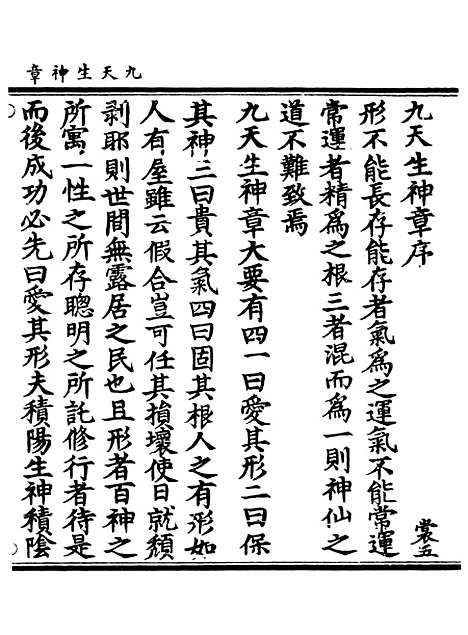 九天生神章
九天生神章序
裳五
形不能長存能存者氣為之運氣不能常運
常運者精為之根三者混而為一則神仙之
道不難致焉
九天生神章大要有四一曰愛其形二曰保
其神三曰貴其氣四曰固其根人之有形如
人有屋雖云假合豈可任其損壞使日就頹
剥耶則世間無露居之民也且形者百神之
所寓一性之所存聰明之所託修行者待是
而後成功必先曰愛其形夫積陽生神積陰